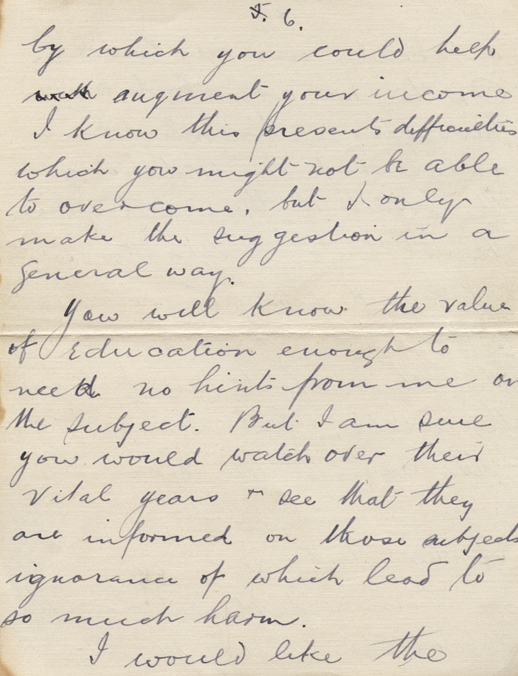 6.
by which you could help
augment your income
I know this presents difficulties
which you might not be able
to overcome, but I only
make the suggestion in a
general way.
You will know the value
of Education enough to
need no hints from me on
the subject. But I am sure
you would watch over their
vital years & see that they
are informed on those subjects
ignorance of which lead to
so much harm.
I would like the